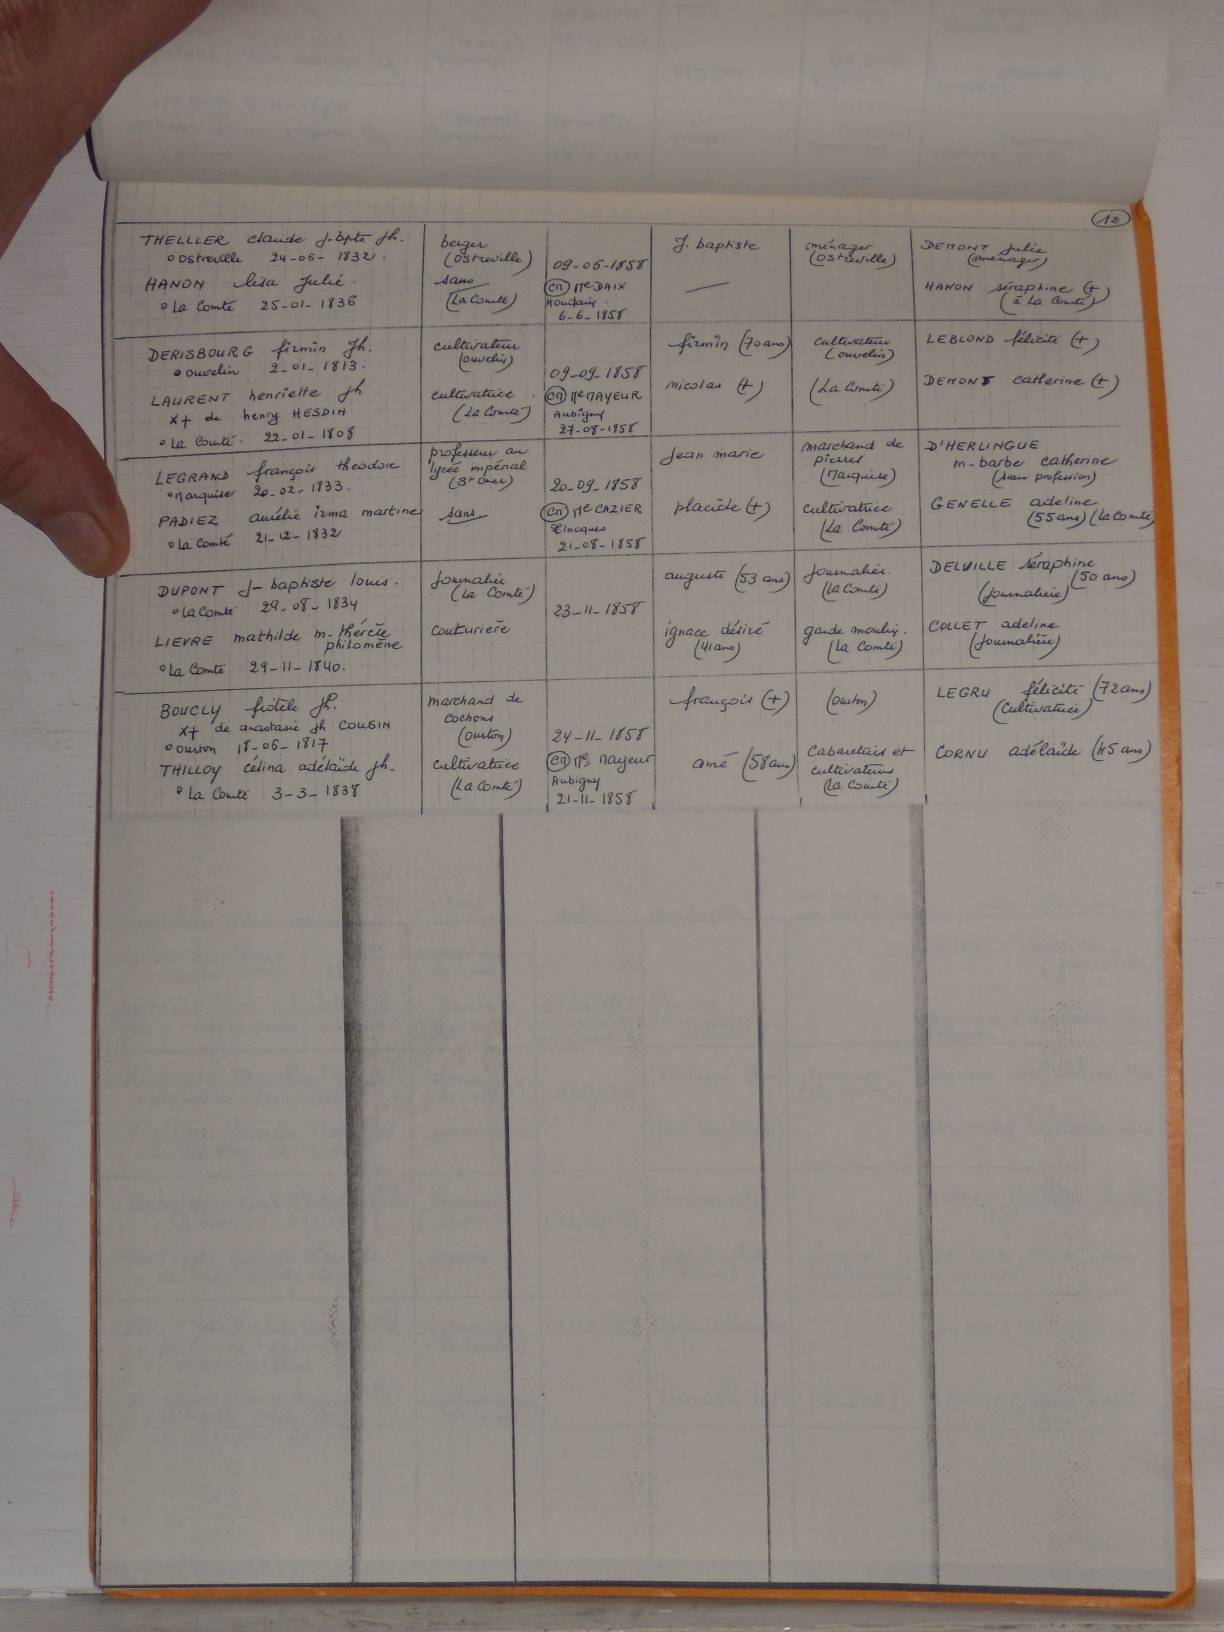 12
THELLIER claude J. bpte Jh.
° Ostreville 24-06-1832.
berger
(Ostreville)
09-06-1858
J. baptiste
ménager
(Ostreville)
DEMONT Julie
(ménager)
HANON lisa Julie.
° La Comté 25-01-1836
sans
(La Comté)
(cn) Me DAIX
Houdain.
6-6-1858
—
HANON séraphine (+)
(à La Comté)
DERISBOURG firmin Jh.
° ouvelin 2-01-1813.
cultivateur
(ouvelin)
09-09-1858
firmin (70 ans)
cultivateur
(ouvelin)
LEBLOND félicité (+)
LAURENT henriette Jh
x+ de henry HESDIN
° La Comté. 22-01-1808
cultivatrice
(La Comté)
(cn) Me MAYEUR
Aubigny
27-08-1858
nicolas (+)
(La Comté)
DEMONT catherine (+)
LEGRAND françois théodore
° Marquise 20-02-1833.
professeur au
lycée impérial
(St Omer)
20-09-1858
Jean marie
marchand de
pierres
(Marquise)
D'HERLINGUE
m-barbe catherine
(sans profession)
PADIEZ aurélie irma martine
° La Comté 21-12-1832
sans
(cn) Me CAZIER
21-08-1858
placide (+)
cultivatrice
(La Comté)
GENELLE adeline
(55 ans) (La Comté)
DUPONT J-baptiste louis.
° La Comté 29-08-1834
Journalier
(La Comté)
23-11-1858
auguste (53 ans)
Journalier.
(La Comté)
DELVILLE séraphine
(50 ans)
(Journalière)
LIEVRE mathilde m-thérèse
philomène
° La Comté 29-11-1840.
couturière
ignace désiré
(41 ans)
garde moulin.
(La Comté)
COLLET adeline
(Journalière)
BOUCLY fidèle Jh.
x+ de anastasie Jh COUSIN
° ourton 18-06-1817
marchand de
cochons
(ourton)
24-11-1858
françois (+)
(ourton)
LEGRU félicité (72 ans)
(cultivatrice)
THILLOY célina adélaïde Jh.
° La Comté 3-3-1838
cultivatrice
(La Comté)
(cn) Me Mayeur
Aubigny
21-11-1858
amé (58 ans)
Cabaretiers et
cultivateurs
(La Comté)
CORNU adélaïde (45 ans)